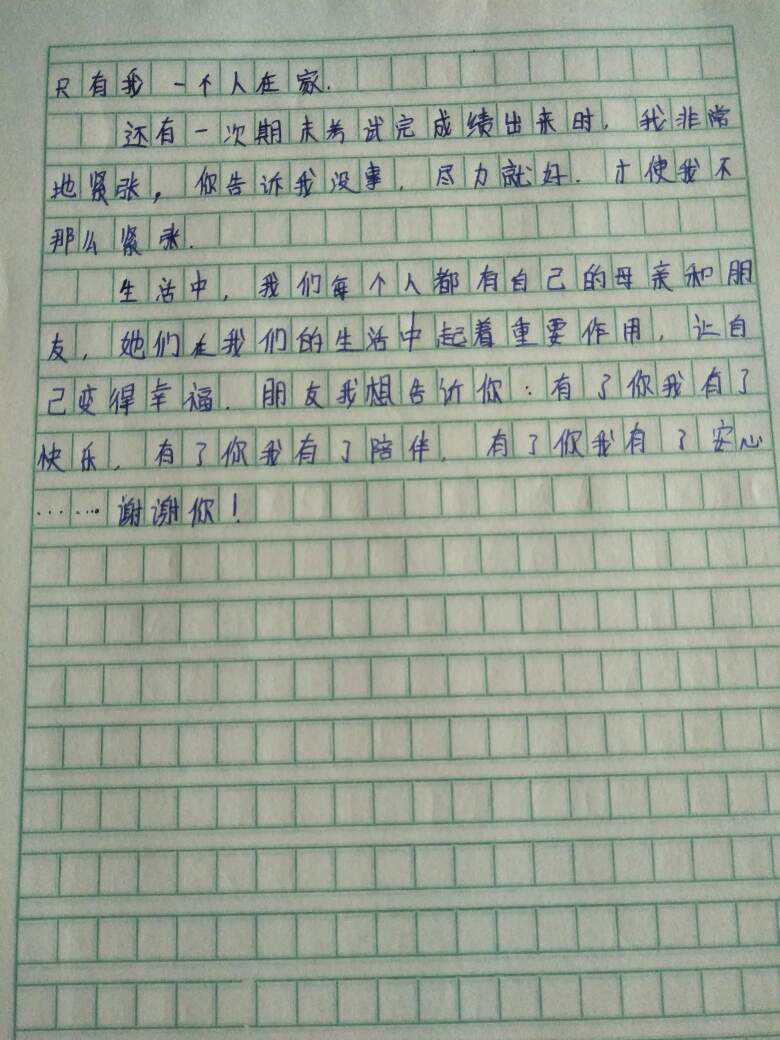 只有我一个人在家.
还有一次期末考试完成绩出来时,我非常
地紧张,你告诉我没事,尽力就好.才使我不
那么紧张.
生活中,我们每个人都有自己的母亲和朋
友,她们在我们的生活中起着重要作用,让自
己变得幸福.朋友我想告诉你:有了你我有了
快乐,有了你我有了陪伴,有了你我有了安心
……谢谢你!